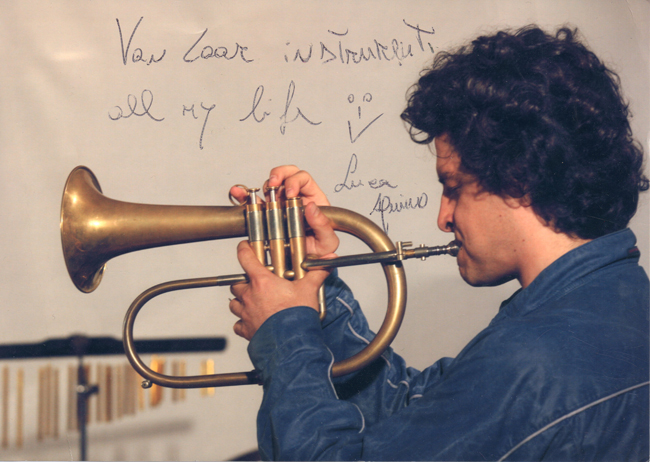 Van Laar instrumenti
all my life
Luca
Aquino